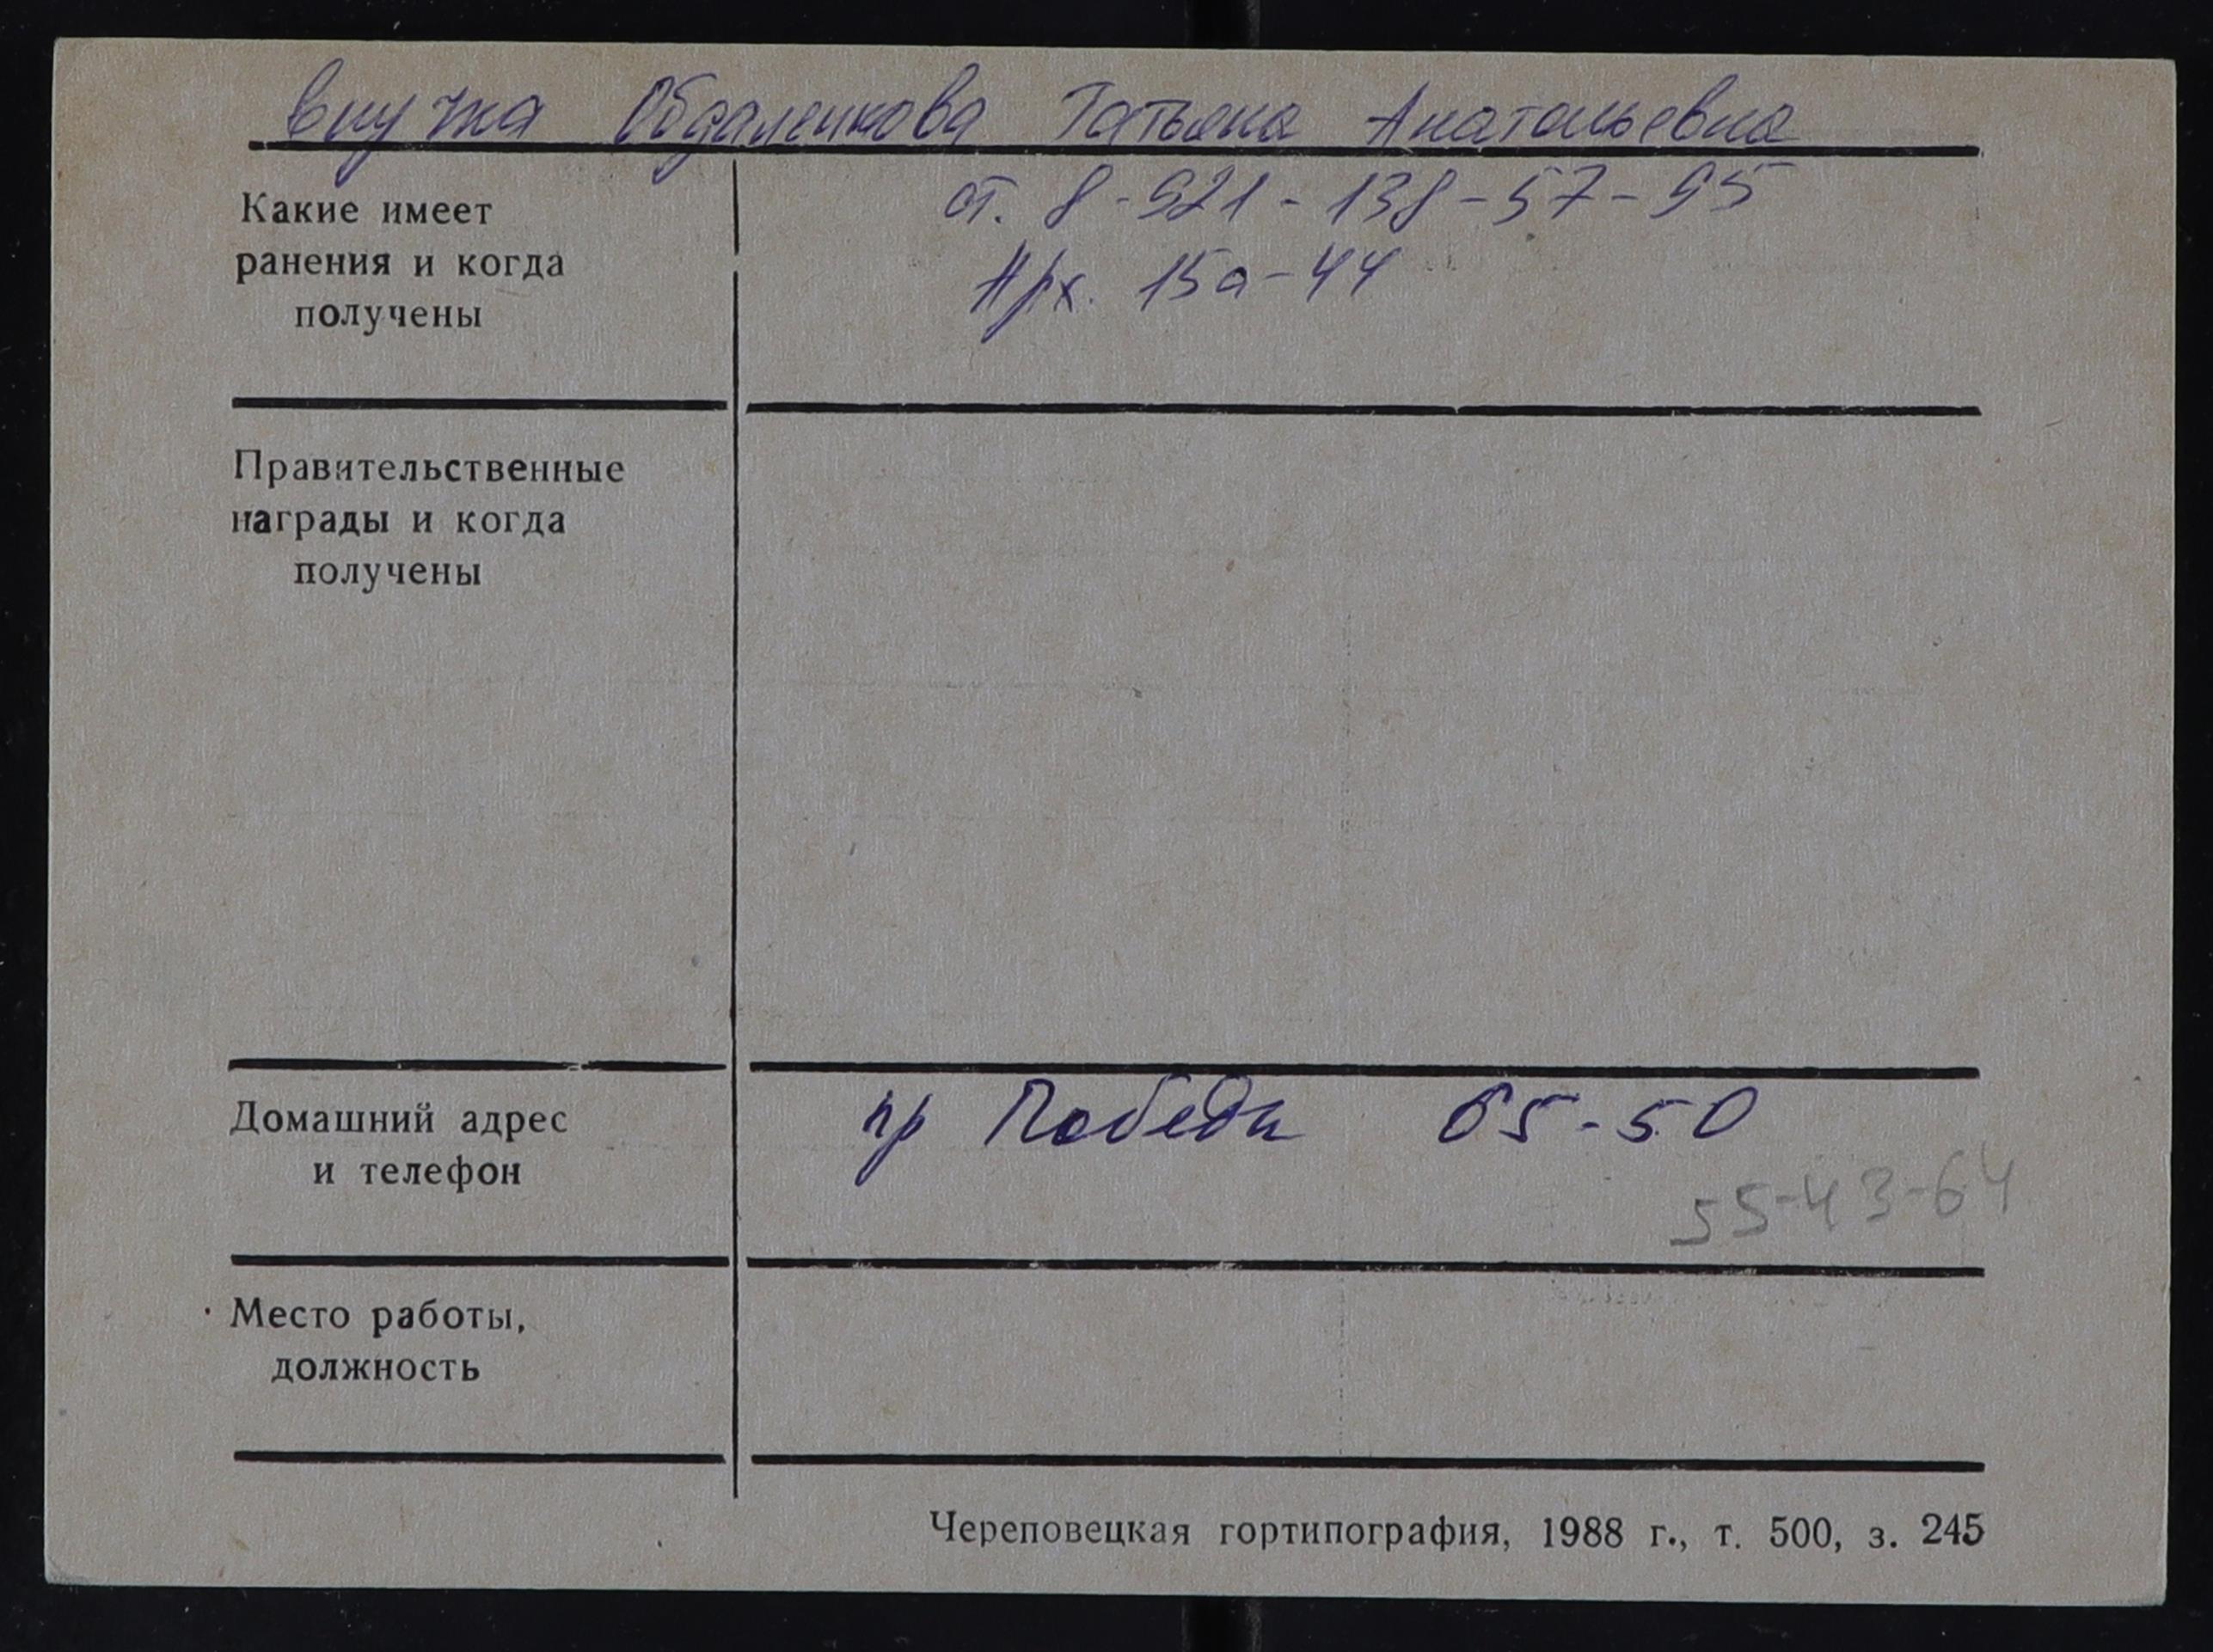 внучка Обдаленкова Татьяна Анатольевна
Какие имеет
ранения и когда
получены
от. 8-921-138-57-95
Арх. 15а-44
Правительственные
награды и когда
получены
Домашний адрес
и телефон
пр Победы 65-50
55-43-64
Место работы,
должность
Череповецкая гортипография, 1988 г., т. 500, з. 245